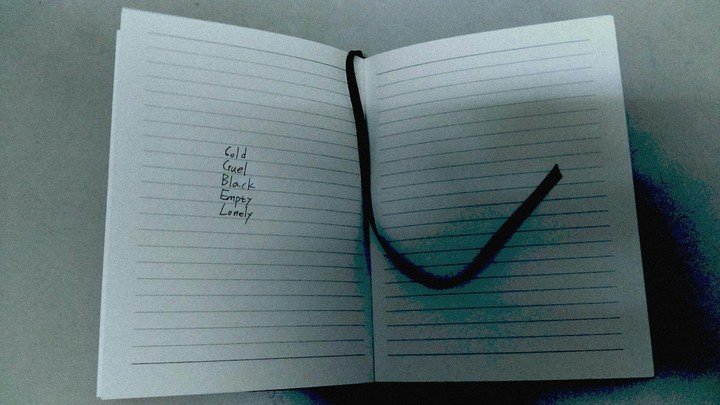 Cold
Cruel
Black
Empty
Lonely